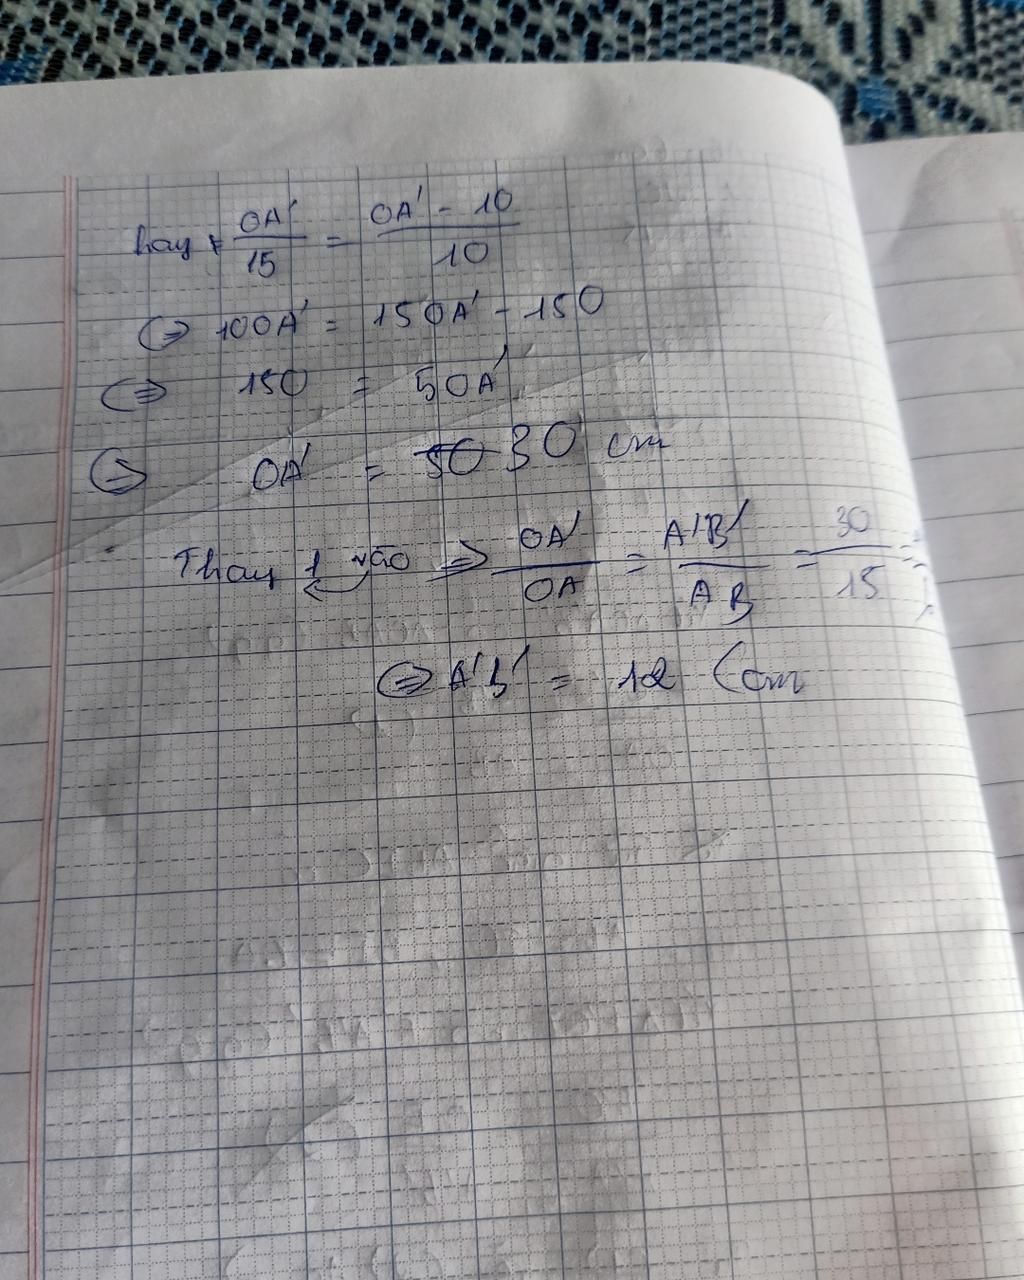 hay OA'/15 = OA' - 10/10
⇔ 10OA' = 15OA' - 150
⇔ 150 = 5OA'
⇔ OA' = 50 30 cm
Thay 1 vào ⇒ OA'/OA = A'B'/AB = 30/15 =
⇔ A'B' = 12 (cm